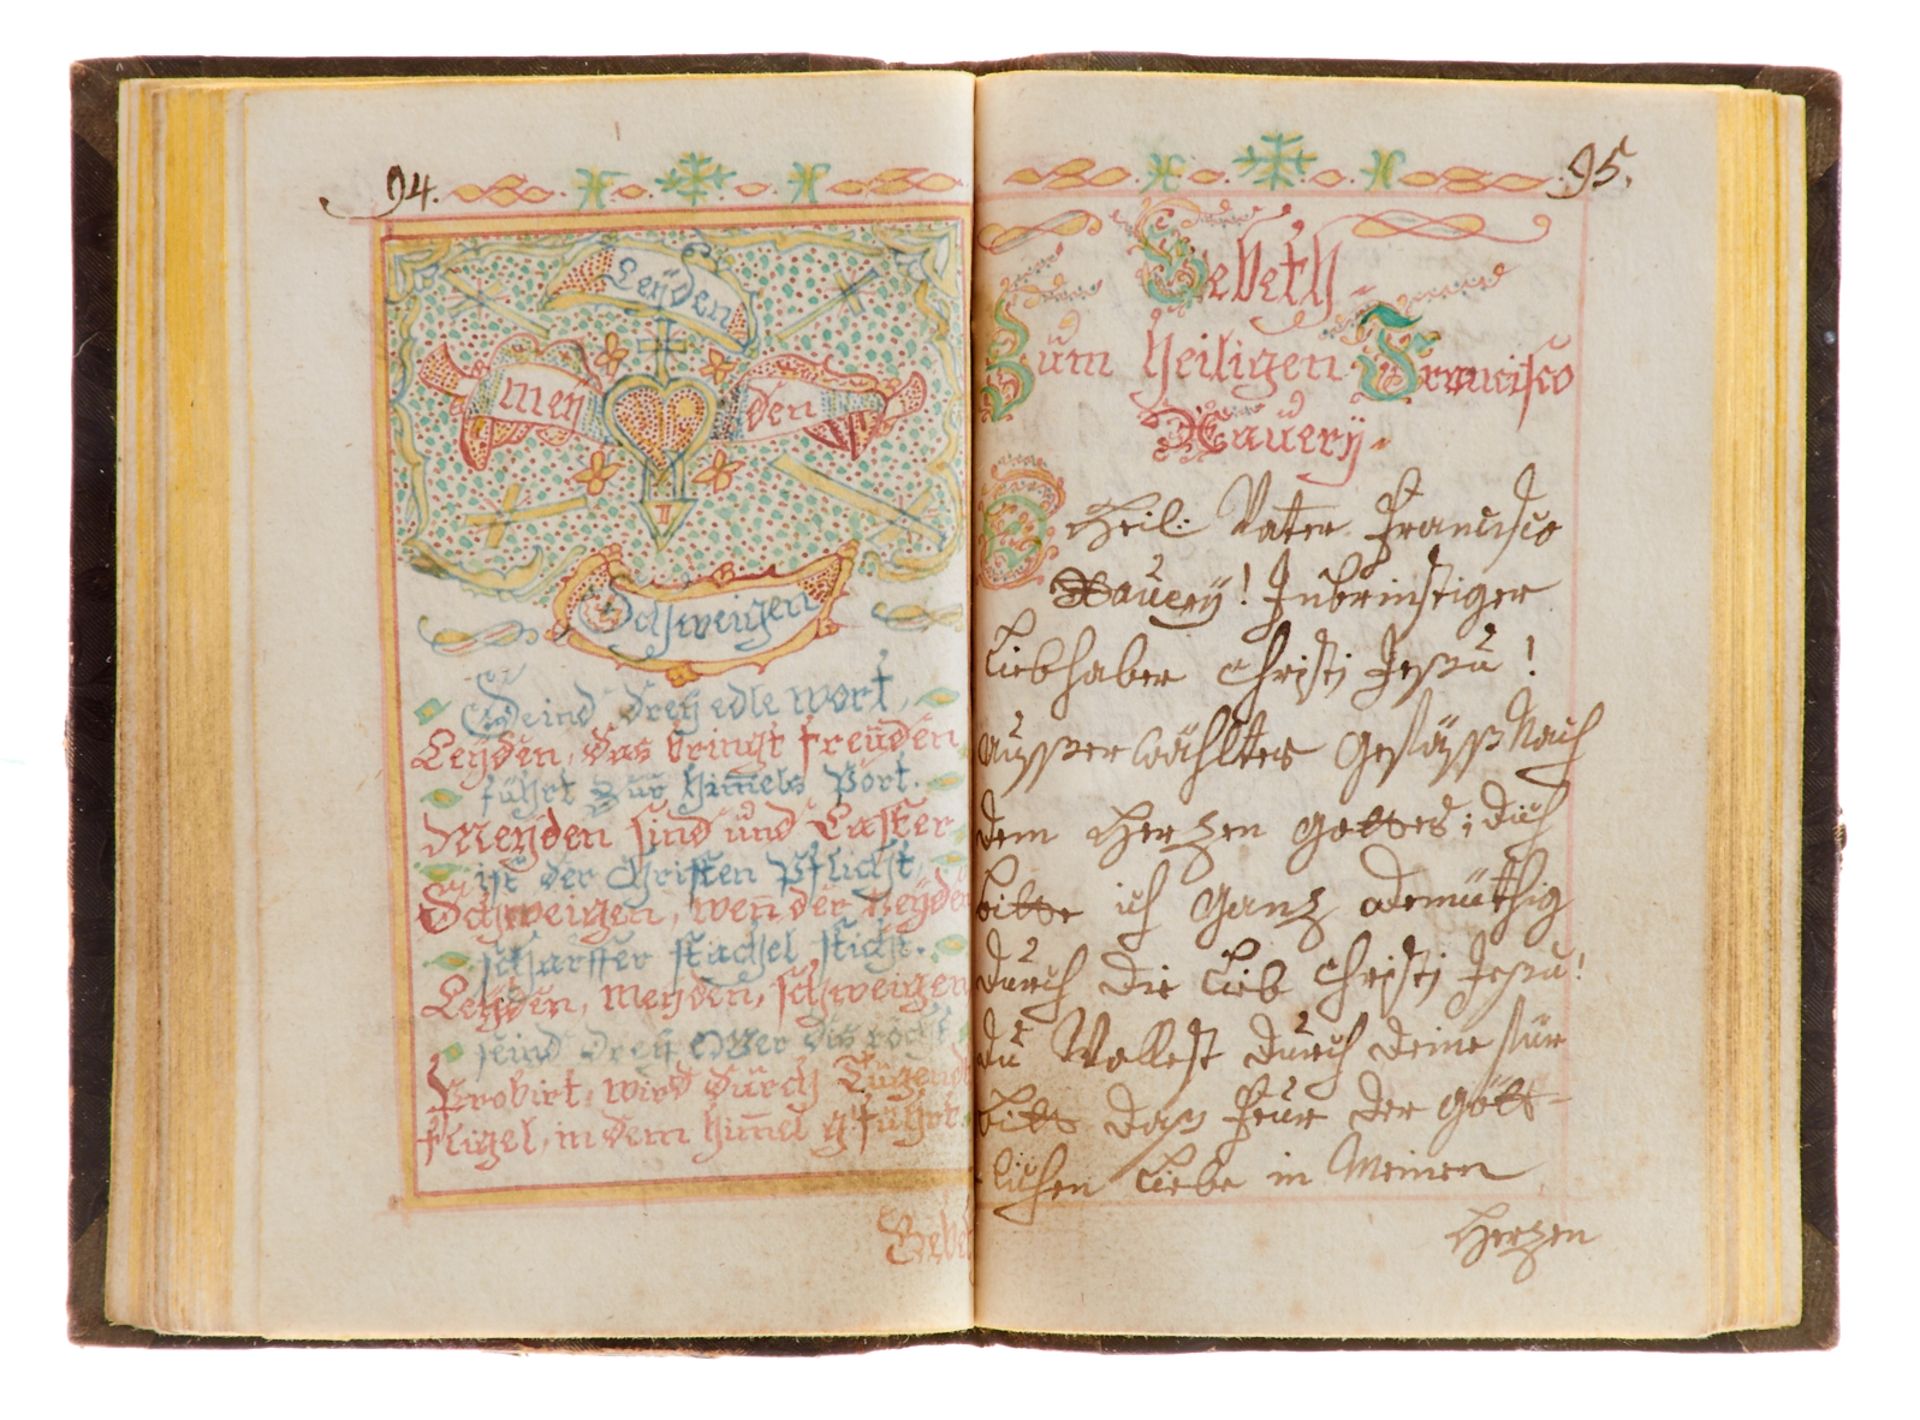 94.
Leÿden
meÿ den
II
Schweigen
Seind dreÿ edle wort,
Leÿden, das bringt freÿden
führt zur him̄els Port.
Meÿden sind und Laster
ist der Christen Pflicht,
Schweigen, wen̄ der Neÿder
scharffer stachel sticht.
Leÿden, meÿden, schweigen
seind dreÿ
Probirt, wird dürch Tügendt
fligel, in dem him̄el g'führt.
Gebet
95.
Gebeth
Zum Heiligen Francisco
Xauerÿ
O Heil: Vatter Francisco
Xauerÿ! Inbrinstiger
Liebhaber Christi Jesu!
Ausserwähltes Gefäss Nach
dem Herzen Gottes; dich
bitte ich Ganz demüthig
durch die Lieb Christi Jesu!
du Wollest durch deine für
bitt das feur der Gött-
lichen Liebe in Meinen
Herzen